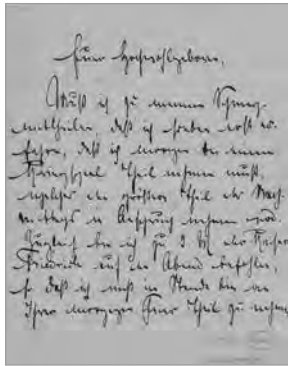 Euer Hochwohlgeboren,
Muß ich zu meinem Schmerz
mittheilen, daß ich soeben erst er-
fahre, daß ich morgen bei einem
Kriegsspiel Theil nehmen muß,
welches den größten Theil des Nach-
mittags in Anspruch nehmen wird.
Zugleich bin ich zu 9 Uhr der Kaiserin
Friedrich auf den Abend befohlen,
so daß ich nicht im Stande bin an
Ihrer morgigen Feier Theil zu nehmen